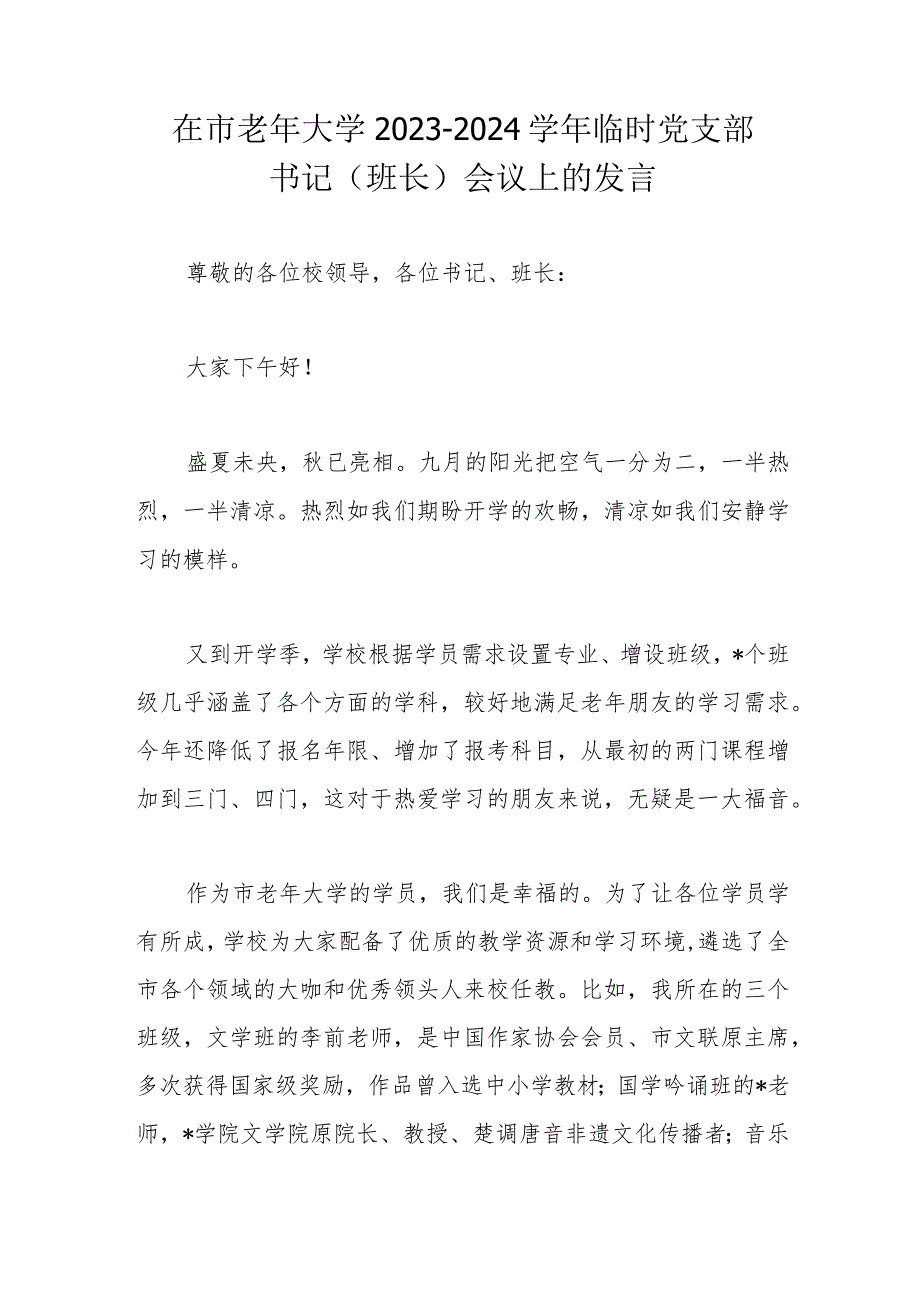 在市老年大学2023-2024学年临时党支部
书记（班长）会议上的发言
尊敬的各位校领导，各位书记、班长：
大家下午好！
盛夏未央，秋已亮相。九月的阳光把空气一分为二，一半热
烈，一半清凉。热烈如我们期盼开学的欢畅，清凉如我们安静学
习的模样。
又到开学季，学校根据学员需求设置专业、增设班级，*个班
级几乎涵盖了各个方面的学科，较好地满足老年朋友的学习需求。
今年还降低了报名年限、增加了报考科目，从最初的两门课程增
加到三门、四门，这对于热爱学习的朋友来说，无疑是一大福音。
作为市老年大学的学员，我们是幸福的。为了让各位学员学
有所成，学校为大家配备了优质的教学资源和学习环境,遴选了全
市各个领域的大咖和优秀领头人来校任教。比如，我所在的三个
班级，文学班的李前老师，是中国作家协会会员、市文联原主席，
多次获得国家级奖励，作品曾入选中小学教材；国学吟诵班的*老
师，*学院文学院原院长、教授、楚调唐音非遗文化传播者；音乐